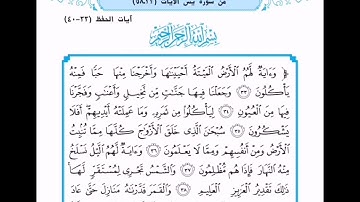 من سورة يس الآيات (٣٣-٥٨)
آيات الحفظ (٣٣-٤٠)
بِسْمِ اللَّهِ الرَّحْمَٰنِ الرَّحِيمِ
﴿ وَءَايَةٌ لَّهُمُ الْأَرْضُ الْمَيْتَةُ أَحْيَيْنَاهَا وَأَخْرَجْنَا مِنْهَا حَبًّا فَمِنْهُ
يَأْكُلُونَ ٣٣ وَجَعَلْنَا فِيهَا جَنَّاتٍ مِّن نَّخِيلٍ وَأَعْنَابٍ وَفَجَّرْنَا
فِيهَا مِنَ الْعُيُونِ ٣٤ لِيَأْكُلُوا مِن ثَمَرِهِ وَمَا عَمِلَتْهُ أَيْدِيهِمْ أَفَلَا
يَشْكُرُونَ ٣٥ سُبْحَانَ الَّذِي خَلَقَ الْأَزْوَاجَ كُلَّهَا مِمَّا تُنبِتُ
الْأَرْضُ وَمِنْ أَنفُسِهِمْ وَمِمَّا لَا يَعْلَمُونَ ٣٦ وَءَايَةٌ لَّهُمُ اللَّيْلُ نَسْلَخُ
مِنْهُ النَّهَارَ فَإِذَا هُم مُّظْلِمُونَ ٣٧ وَالشَّمْسُ تَجْرِي لِمُسْتَقَرٍّ لَّهَا
ذَٰلِكَ تَقْدِيرُ الْعَزِيزِ الْعَلِيمِ ٣٨ وَالْقَمَرَ قَدَّرْنَاهُ مَنَازِلَ حَتَّىٰ عَادَ